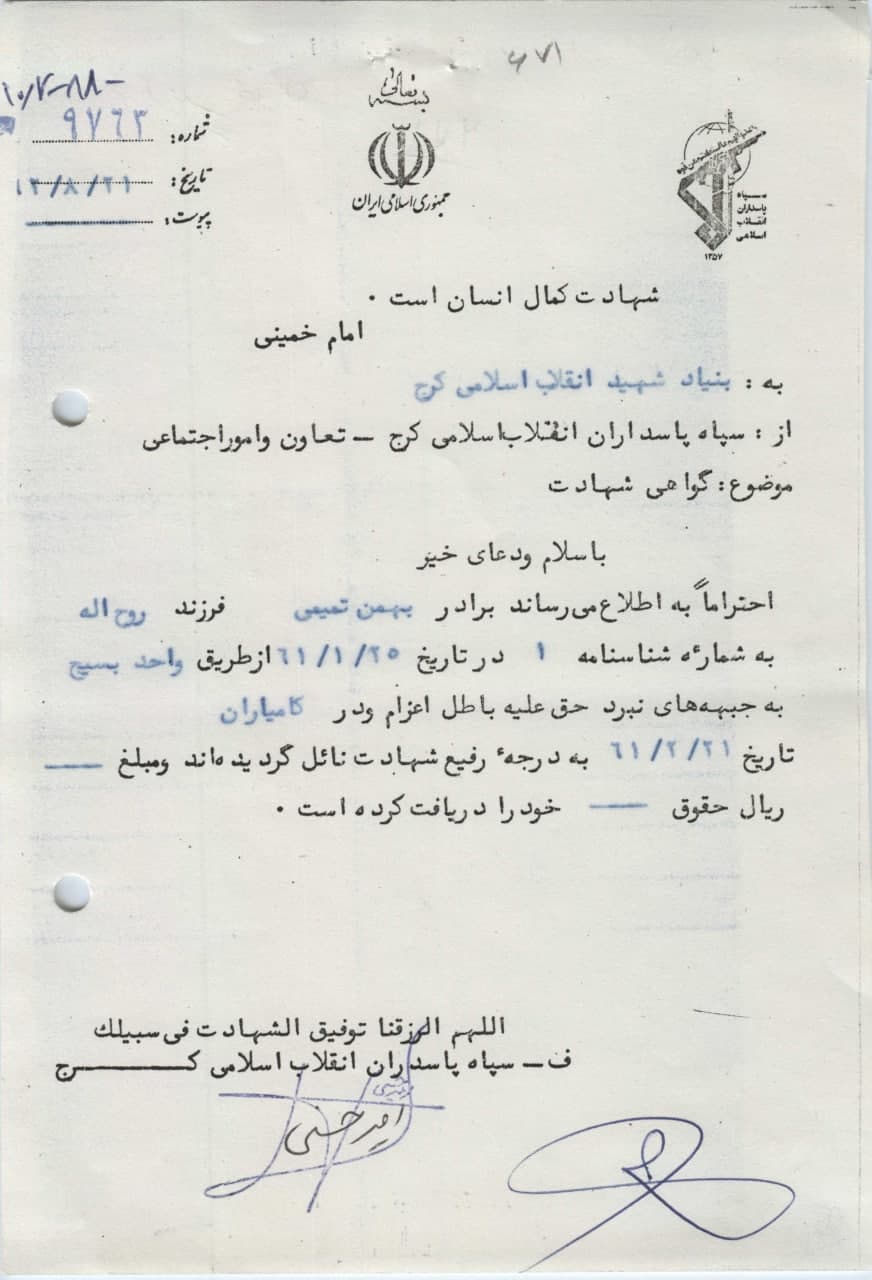 ۶۷۱
بسمه تعالی
جمهوری اسلامی ایران
سپاه
پاسداران
انقلاب
اسلامی
۱۳۵۷
شماره: ۹۷۶۳
تاریخ: ۲۱/۸/
پیوست:
شهادت کمال انسان است ۰
امام خمینی
به : بنیاد شهید انقلاب اسلامی کرج
از : سپاه پاسداران انقلاب اسلامی کرج – تعاون و امور اجتماعی
موضوع : گواهی شهادت
باسلام ودعای خیر
احتراماً به اطلاع می‌رساند برادر بهمن تمیمی فرزند روح اله
به شماره شناسنامه ۱ در تاریخ ۶۱/۱/۲۵ از طریق واحد بسیج
به جبهه‌های نبرد حق علیه باطل اعزام ودر کامیاران
تاریخ ۶۱/۲/۲۱ به درجهٔ رفیع شهادت نائل گردیده‌اند ومبلغ —
ریال حقوق — خود را دریافت کرده است ۰
اللهم الرزقنا توفیق الشهادت فی سبیلك
ف – سپاه پاسداران انقلاب اسلامی کـــرج